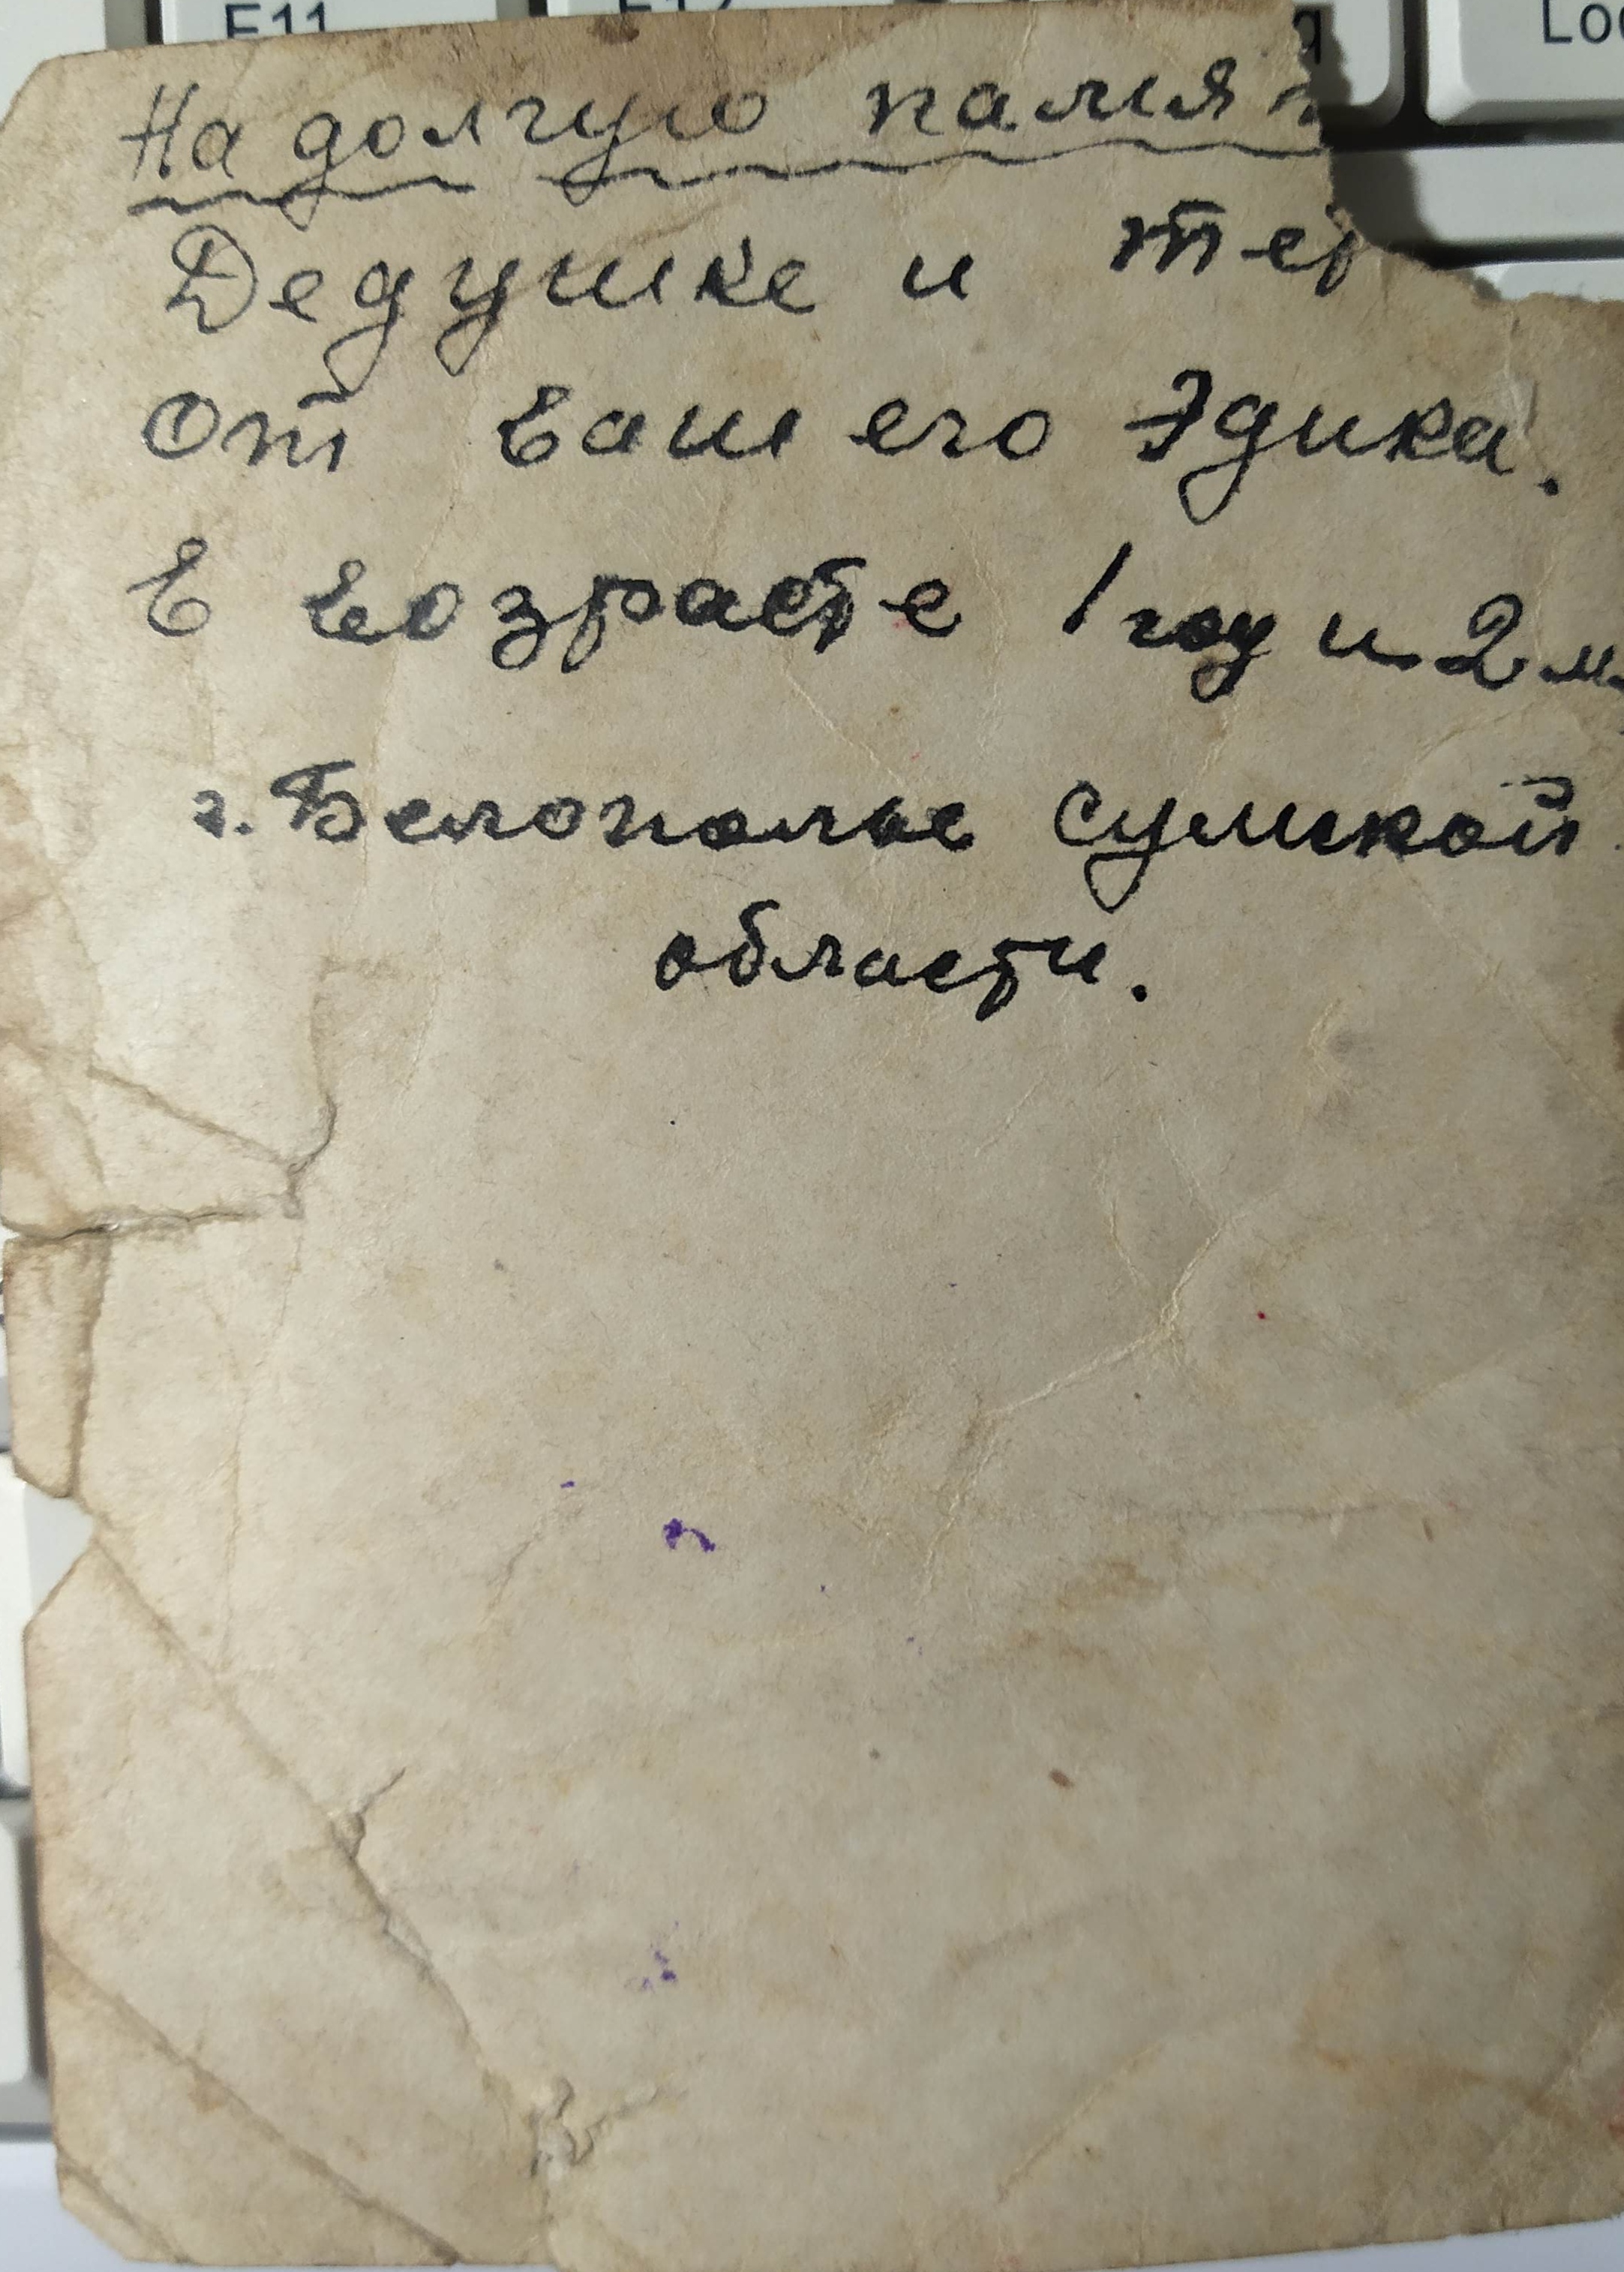 F11
На долгую
Дедушке и
от вашего Эдика.
в возрасте 1 год и 2 м.
г. Белополье сумской
области.